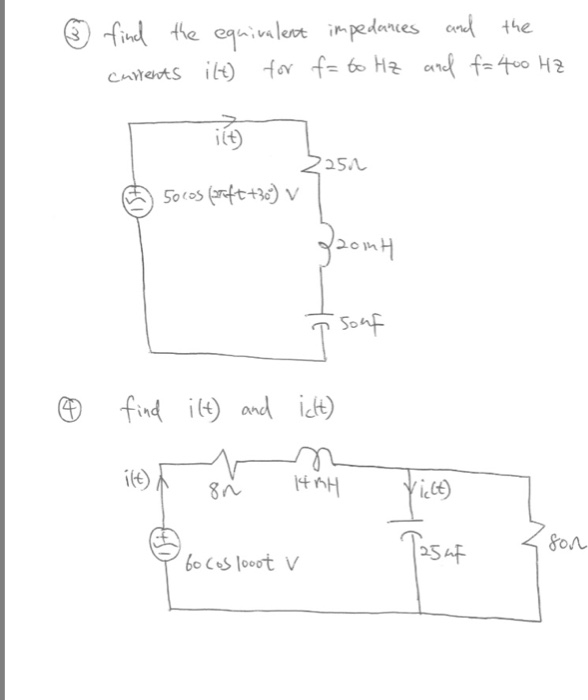 ③ find the equivalent impedances and the
currents i(t) for f= 60 Hz and f=400 Hz
i(t)
25Ω
50cos(2πft+30°) V
20mH
50μF
④ find i(t) and ic(t)
i(t)
8Ω
14mH
ic(t)
60 cos 1000t V
25μF
80Ω